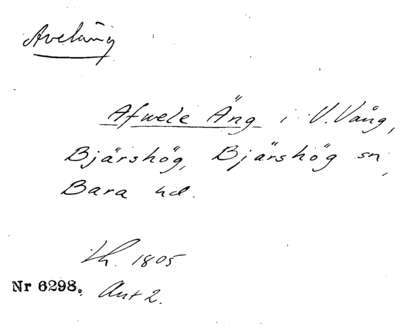 Aveläng
Afwele Äng i V. Vång,
Bjärshög, Bjärshög sn,
Bara hd.
Lh. 1805
Nr 6298. Akt 2.